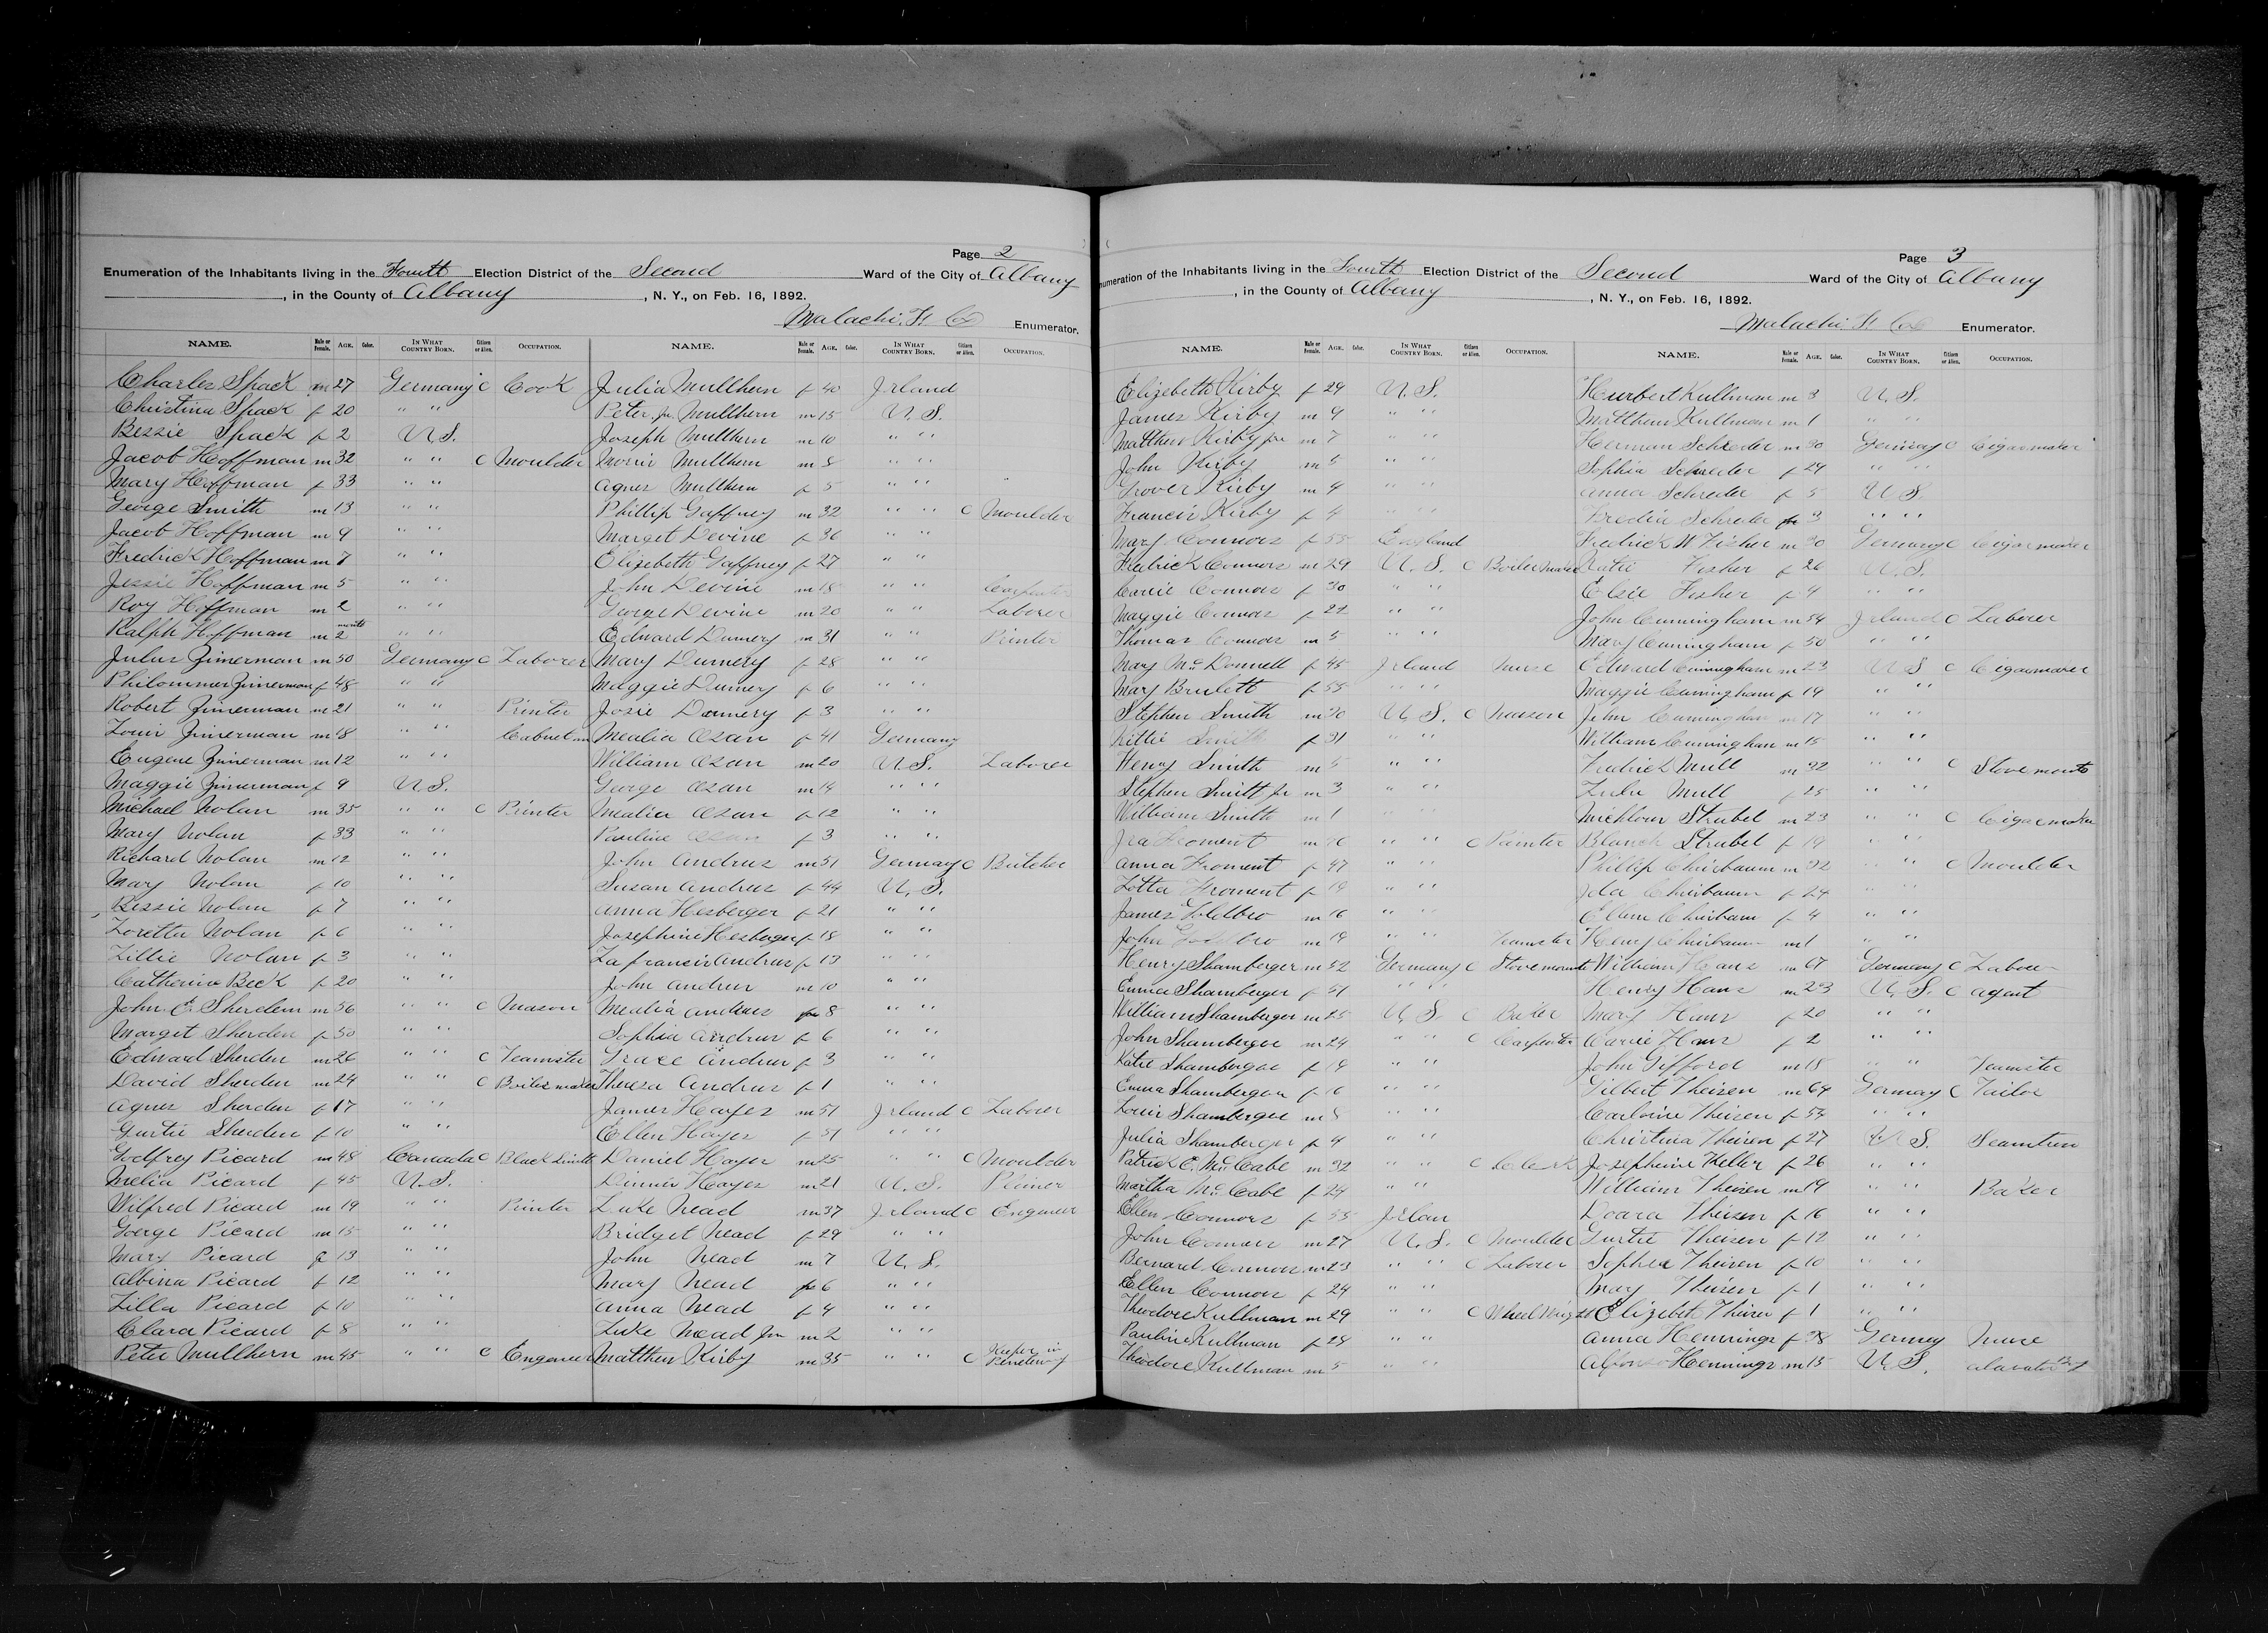 Page 2
Enumeration of the Inhabitants living in the Fourth Election District of the Second Ward of the City of Albany
, in the County of Albany, N. Y., on Feb. 16, 1892.
Malachi. F. Cox Enumerator.
NAME. Male or Female. AGE. Color. IN WHAT COUNTRY BORN. Citizen or Alien. OCCUPATION.
Charles Spack m 27 Germany C Cook
Christina Spack f 20 " "
Bessie Spack f 2 U S.
Jacob Hoffman m 32 " " C Moulder
Mary Hoffman f 33 " "
George Smith m 13 " "
Jacob Hoffman m 9 " "
Fredrick Hoffman m 7 " "
Jessie Hoffman m 5 " "
Roy Hoffman m 2 " "
Ralph Hoffman m 2 months " "
Julus Zimerman m 50 Germany C Laborer
Philommer Zimerman f 48 " "
Robert Zimerman m 21 " " Printer
Louis Zimerman m 18 " " Cabnet m
Eugene Zimerman m 12 " "
Maggie Zimerman f 9 U S.
Michael Nolan m 35 " " C Printer
Mary Nolan f 33 " "
Richard Nolan m 12 " "
Mary Nolan f 10 " "
Bessie Nolan f 7 " "
Loretta Nolan f 6 " "
Lillie Nolan f 3 " "
Catherine Beck f 20 " "
John C. Sherden m 56 " " C Mason
Marget Sherden f 50 " "
Edward Sherden m 26 " " C Teamster
David Sherden m 24 " " C Boiler maker
Agnes Sherden f 17 " "
Gurtie Sherden f 10 " "
Godfrey Picard m 48 Canada C Black Smith
Melia Picard f 45 U. S.
Wilfred Picard m 19 " " Printer
Goerge Picard m 15 " "
Mary Picard f 13 " "
Albina Picard f 12 " "
Lilla Picard f 10 " "
Clara Picard f 8 " "
Peter Mullhern m 45 " " C Engeneer
NAME. Male or Female. AGE. Color. IN WHAT COUNTRY BORN. Citizen or Alien. OCCUPATION.
Julia Mullhern f 40 Irland
Peter jr. Mullhern m 15 U. S.
Joseph Mullhern m 10 " "
Morris Mullhern m 8 " "
Agnes Mullhern f 5 " "
Phillip Gaffney m 32 " " C Moulder
Marget Devine f 36 " "
Elizebeth Gaffney f 27 " "
John Devine m 18 " " Carpenter
George Devine m 20 " " Laborer
Edward Dumery m 31 " " Printer
Mary Dumery f 28 " "
Maggie Dumery f 6 " "
Josie Dumery f 3 " "
Mealia Ozan f 41 Germany
William Ozan m 20 U. S. Laborer
Gorge Ozan m 14 " "
Mealia Ozan f 12 " "
Pauline Ozan f 3 " "
John Andrus m 51 Germany C Butcher
Susan Andrus f 44 U. S.
Anna Hesberger f 21 " "
Josephine Hesberger f 18 " "
Lafrancis Andrus f 13 " "
John Andrus m 10 " "
Mealia Andrus f 8 " "
Sophia Andrus f 6 " "
Grace Andrus f 3 " "
Theresa Andrus f 1 " "
James Hayes m 51 Irland C Laborer
Ellen Hayes f 51 " "
Daniel Hayes m 25 " " C Moulder
Dinnis Hayes m 21 U. S.
Luke Mead m 37 Irland C Engeneer
Bridget Mead f 29 " "
John Mead m 7 U. S.
Mary Mead f 6 " "
Anna Mead f 4 " "
Luke Mead Jun m 2 " "
Matthew Kirby m 35 " " C Keeper in
Page 3
Enumeration of the Inhabitants living in the Fourth Election District of the Second Ward of the City of Albany
, in the County of Albany, N. Y., on Feb. 16, 1892.
Malachi. F. Cox Enumerator.
NAME. Male or Female. AGE. Color. IN WHAT COUNTRY BORN. Citizen or Alien. OCCUPATION.
Elizebeth Kirby f 29 U. S.
James Kirby m 9 " "
Matthew Kirby jr m 7 " "
John Kirby m 5 " "
Grover Kirby m 4 " "
Francis Kirby f 4 " "
Mary Connors f 55 England
Fredrick Connors m 29 U. S. C Boiler maker
Carrie Connors f 30 " "
Maggie Connors f 22 " "
Thomas Connors m 5 " "
Mary McDonnell f 45 Irland Nurse
Mary Brulett f 55 " "
Stephen Smith m 30 U. S. C Mason
Kittie Smith f 31 " "
Henry Smith m 5 " "
Stephen Smith jr m 3 " "
William Smith m 1 "
Ira Froment m 46 " " C Painter
Anna Froment f 47 " "
Lotta Froment f 19 " "
James Goldbro m 16 " "
John Goldbro m 19 " " Teamster
Henry Shamberger m 52 Germany C Stove mounte
Emma Shamberger f 51 " "
William Shamberger m 25 U. S C Baker
John Shamberger m 24 " " C Carpenter
Katie Shamberger f 19 " "
Emma Shamberger f 16 " "
Louis Shamberger m 8 " "
Julia Shamberger f 4 " "
Patrick C. McCabe m 32 " " C Clerk
Martha McCabe f 24 " "
Ellen Connors f 55 Irlan
John Connors m 27 U. S. C Moulder
Bernard Connors m 23 " " C Laborer
Ellen Connors f 24 " "
Theodore Kullman m 29 " " C Wheel Wright
Pauline Kullman f 28 " "
Theodore Kullman m 5 " "
NAME. Male or Female. AGE. Color. IN WHAT COUNTRY BORN. Citizen or Alien. OCCUPATION.
Hurbert Kullman m 3 U. S.
Matthew Kullman m 1 " "
Herman Schreder m 30 Germay C Cigarmaker
Sophia Schreder f 29 " "
Anna Schreder f 5 U S.
Fredia Schreder f 3 " "
Fredrick W Fisher m 30 Germany C Cigarmaker
Katie Fisher f 26 U. S.
Elsie Fisher f 4 " "
John Cunningham m 54 Irland C Laborer
Mary Cuningham f 50 " "
Edward Cuningham m 23 U S C Cigarmaker
Maggie Cuningham f 19 " "
John Cuningham m 17 " "
William Cuningham m 15 " "
Fredrick Mull m 32 " " C Stove mounte
Lulu Mull f 25 " "
Strubel m 23 " " C Cigarmaker
Blanch Strubel f 19 " "
Phillip Chirbaum m 32 " " C Moulder
Ida Chirbaum f 24 " "
Ellen Chirbaum f 4 " "
Henry Chirbaum m 1 " "
William Hans m 67 Germany C Labor
Henry Hans m 23 U. S. C Agent
Mary Hans f 20 " "
Carrie Hans f 2 " "
John Gifford m 18 " " Teamster
Gilbert Theisen m 64 Germay C Tailor
Carloine Theisen f 53 " "
Christina Theisen f 27 U. S.
Josepheine Keller f 26 " "
William Theisen m 19 " " Baker
Doara Theisen f 16 " "
Gurtie Theisen f 12 " "
Sophia Theisen f 10 " "
May Theisen f 1 " "
Elizebeth Theisen f 1 " "
Anna Hennings f 38 Germey Nurse
Alfonso Hennings m 15 U. S. Alavator Boy